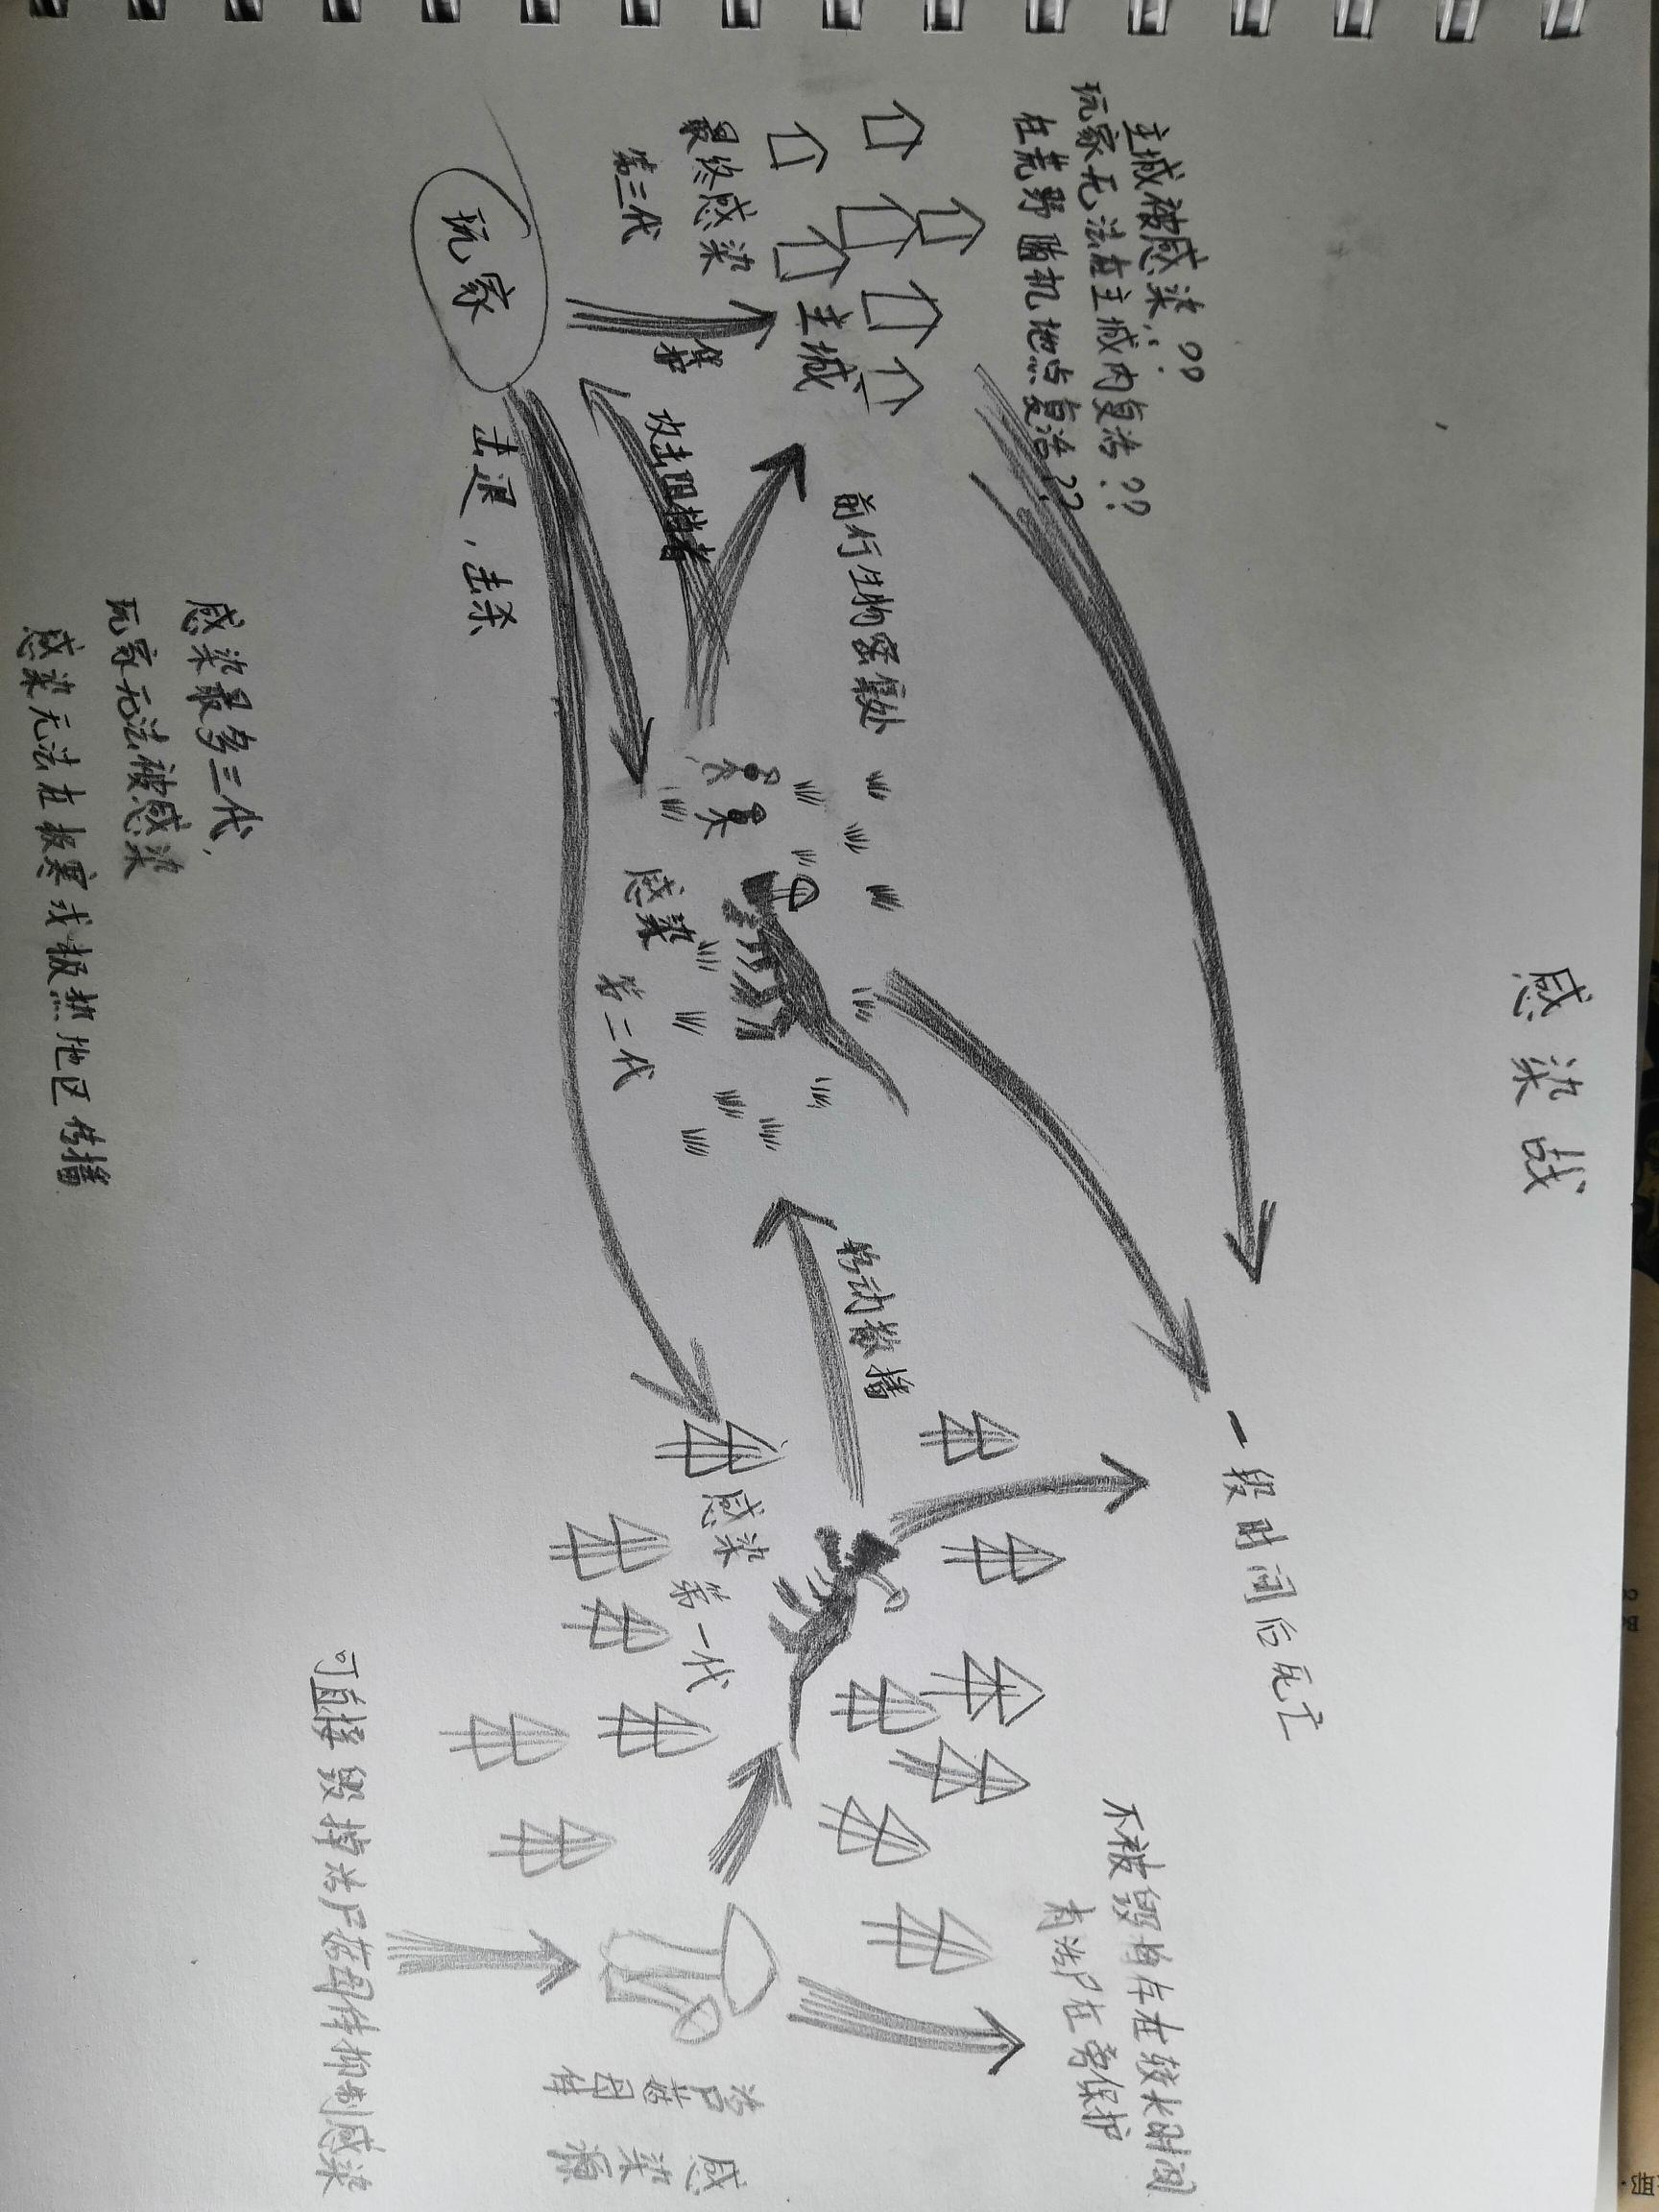 感染战
主城被感染??
玩家无法在主城内复活??
在荒野随机地点复活??
主城
最终感染
第三代
玩家
保护
攻击阻挡者
击退,击杀
前行生物密集处
感染
第二代
移动散播
一段时间后死亡
感染
第一代
不被毁将存在较长时间
有活尸在旁保护
活尸菇母体
感染源
可直接毁掉活尸菇母体抑制感染
感染最多三代,
玩家无法被感染
感染无法在极寒或极热地区传播